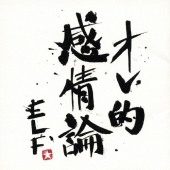 オレ的
感情論
ELF.